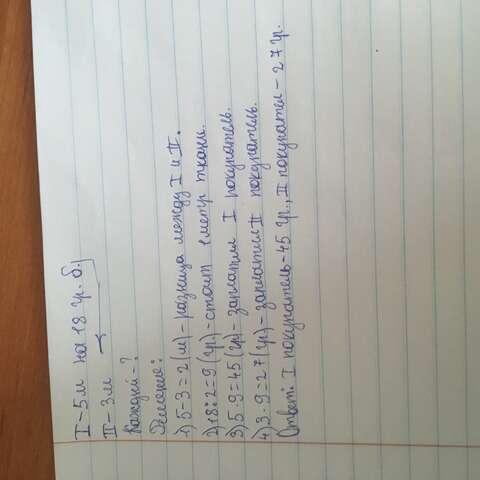 I - 5 м на 18 гр. б.
II - 3 м
Каждый - ?
Решение:
1) 5-3=2(м)-разница между I и II.
2) 18:2=9(гр.)-стоит 1 метр ткани.
3) 5·9=45(гр.)-заплатил I покупатель.
4) 3·9=27(гр.)-заплатил II покупатель.
Ответ: I покупатель-45 гр., II покупател-27 гр.